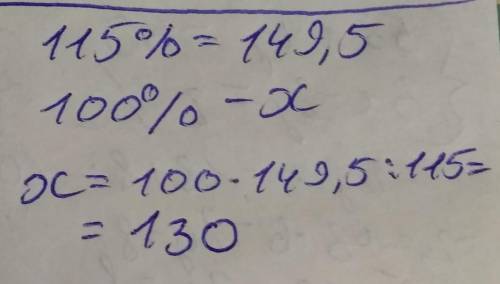 115% = 149,5
100% - x
x = 100 · 149,5 : 115 =
= 130